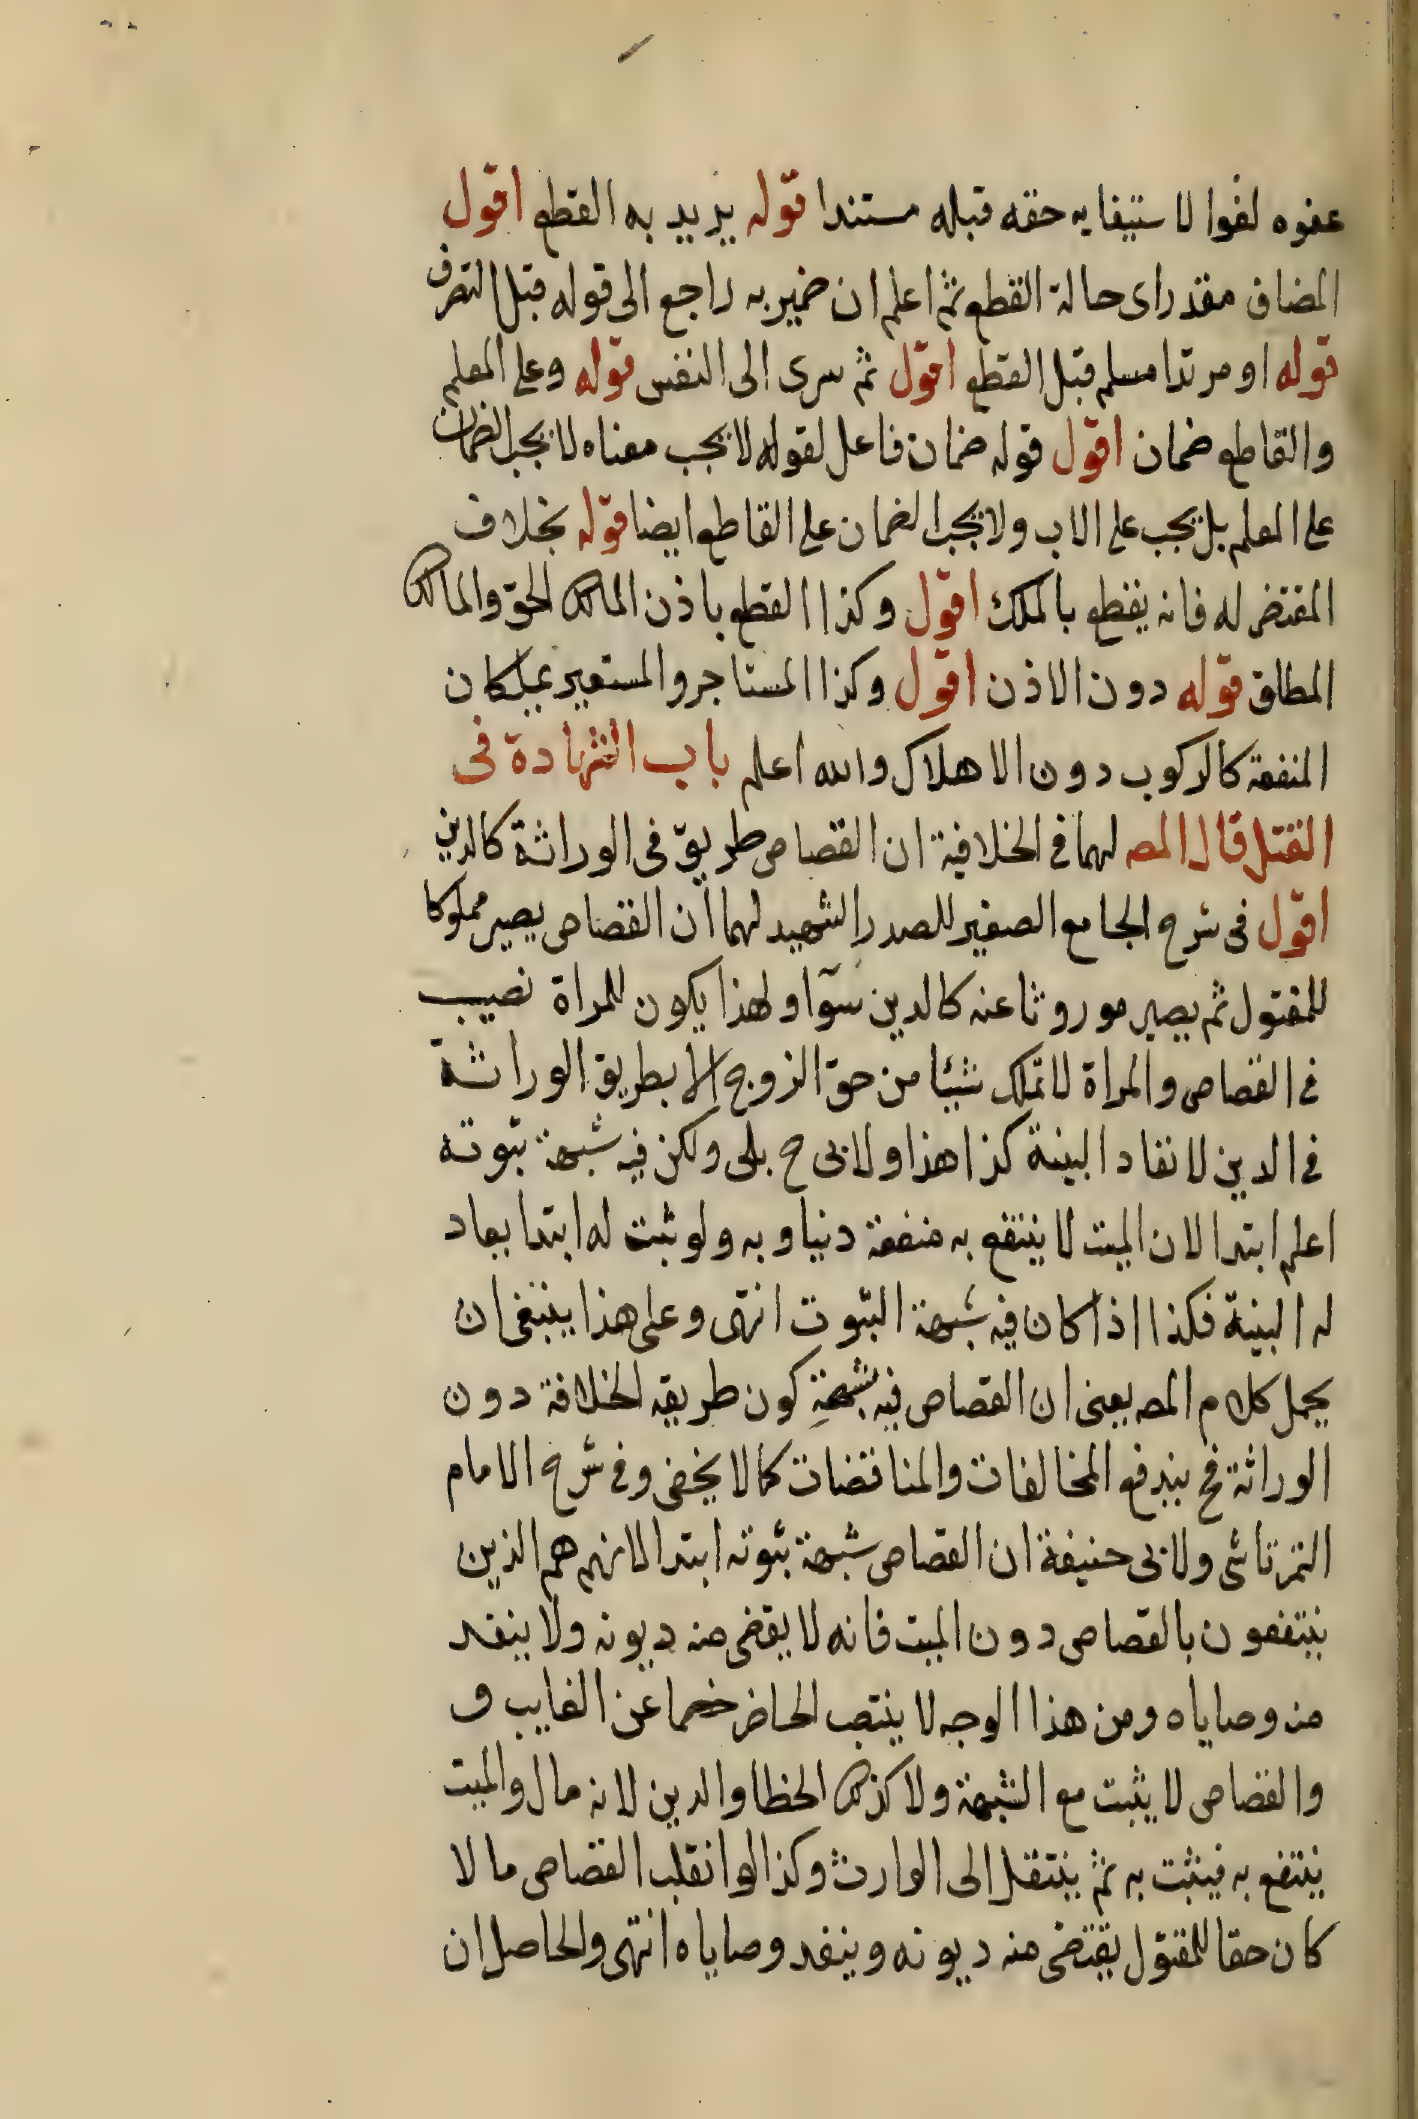 عفوه لغوا لا ستيفايه حقه قبله مستندا قوله يريد به القطع اقول
المضاف مقدر اى حالة القطع ثم اعلم ان ضمير به راجع الى قوله قبل التصرف
قوله او مرتدا مسلم قبل القطع اقول ثم سرى الى النفس قوله وعلى المعلم
والقاطع ضمان اقول قوله ضمان فاعل لقوله لا يجب معناه لا يجب الضمان
على المعلم بل يجب على الاب ولا يجب الضمان على القاطع ايضا قوله بخلاف
المقتض له فانه يقطع بالملك اقول وكذا القطع باذن المالك الحق والمالك
المطلق قوله دون الاذن اقول وكذا المستاجر والمستعير يملكان
المنفعة كالركوب دون الاهلاك والله اعلم باب الشهادة فى
القتل قال المصـ لهما فى الخلافية ان القصاص طريق فى الوراثة كالدين
اقول فى شرح الجامع الصغير للصدر الشهيد لهما أن القصاص يصير مملوكا
للمقتول ثم يصير موروثا عنه كالدين سوآ ولهذا يكون للمراة نصيب
فى القصاص والمراة لا تملك شيئا من حق الزوج الا بطريق الوراثة
فى الدين لا تعاد البينة كذا هذا ولابى ح بلى ولكن فيه شبهة ثبوته
اعلم ابتدا لان الميت لا ينتفع به منفعة دنياويه ولو ثبت له ابتدا يعاد
له البينة فكذا اذا كان فيه شبهة الثبوت انتهى وعلى هذا ينبغى ان
يحمل كلام المصـ يعنى ان القصاص فيه شبهة كون طريقه الخلافة دون
الوراثة فح يندفع المخالفات والمناقضات كما لا يخفى وفى شرح الامام
التمرتاشى ولابى حنيفة ان القصاص شبهة ثبوته ابتدا لانهم هم الذين
ينتفعون بالقصاص دون الميت فانه لا يقضى منه ديونه ولا ينفد
منه وصاياه ومن هذا الوجه لا ينتصب الحاضر خصما عن الغايب و
والقصاص لا يثبت مع الشبهة ولا كذلك الخطا والدين لانه مال والميت
ينتفع به فيثبت به ثم ينتقل الى الوارث وكذا لو انقلب القصاص مالا
كان حقا للمقتول يقتضى منه ديونه وينفد وصاياه انتهى والحاصل ان